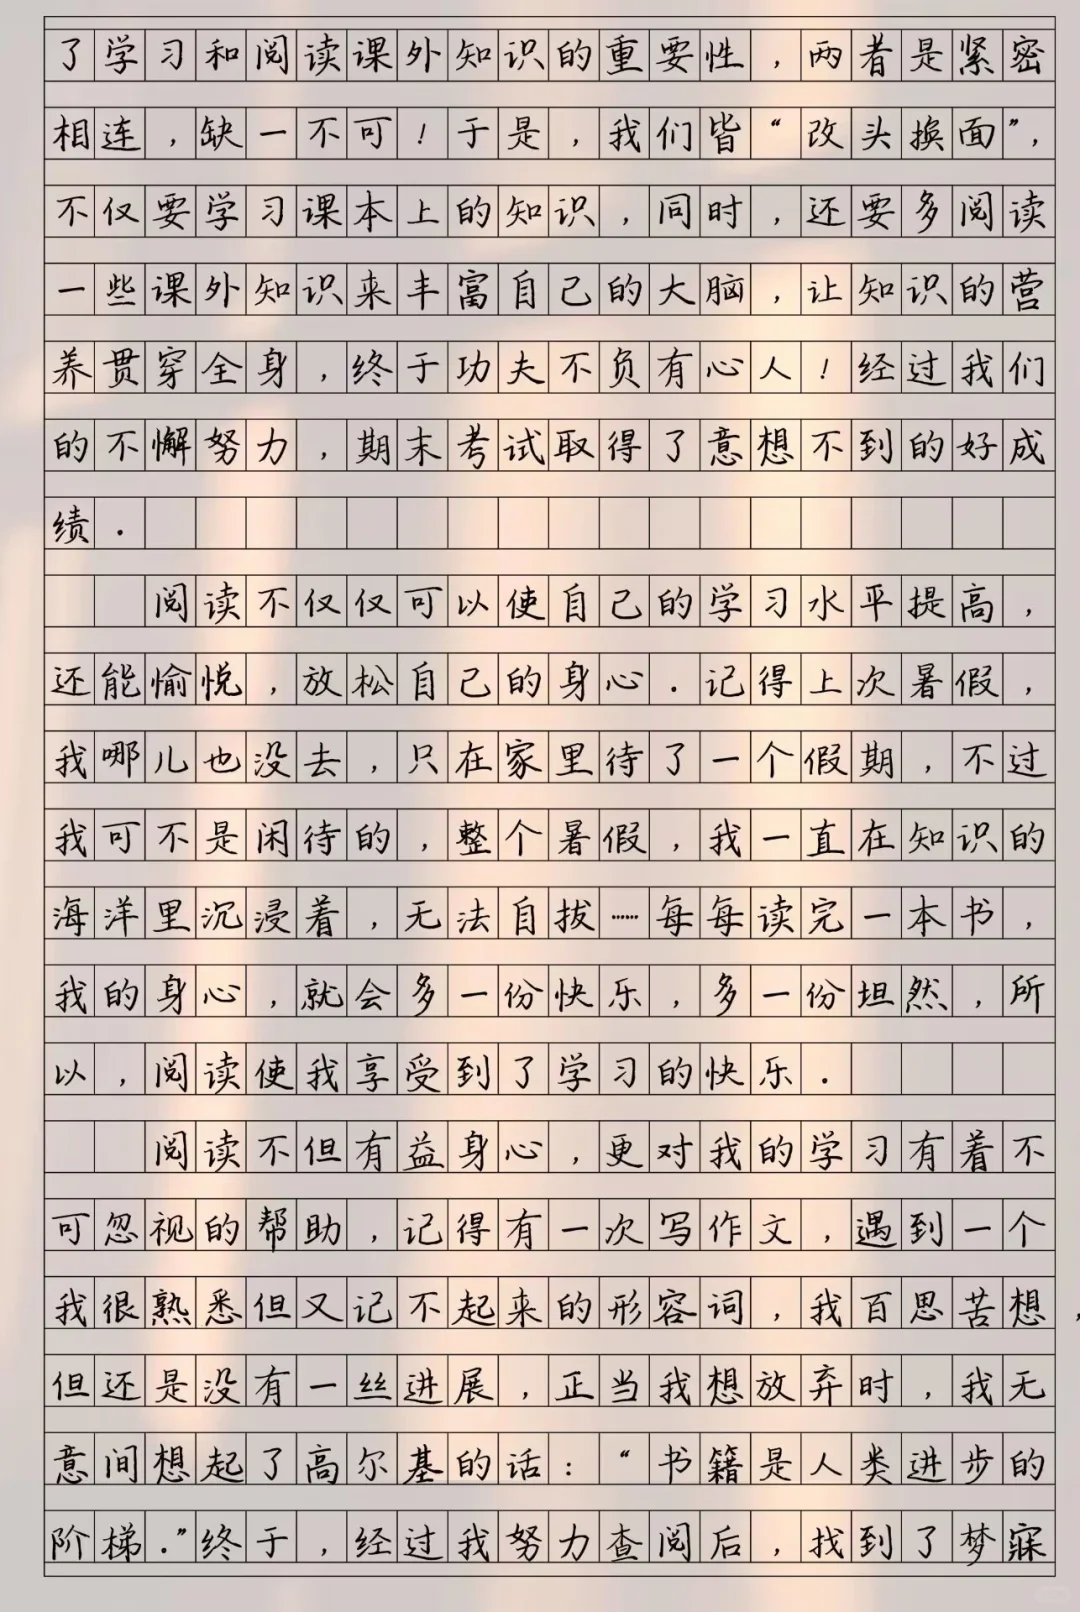 了学习和阅读课外知识的重要性，两者是紧密
相连，缺一不可！于是，我们皆“改头换面”，
不仅要学习课本上的知识，同时，还要多阅读
一些课外知识来丰富自己的大脑，让知识的营
养贯穿全身，终于功夫不负有心人！经过我们
的不懈努力，期末考试取得了意想不到的好成
绩.
阅读不仅仅可以使自己的学习水平提高，
还能愉悦，放松自己的身心.记得上次暑假，
我哪儿也没去，只在家里待了一个假期，不过
我可不是闲待的，整个暑假，我一直在知识的
海洋里沉浸着，无法自拔……每每读完一本书，
我的身心，就会多一份快乐，多一份坦然，所
以，阅读使我享受到了学习的快乐.
阅读不但有益身心，更对我的学习有着不
可忽视的帮助，记得有一次写作文，遇到一个
我很熟悉但又记不起来的形容词，我百思苦想，
但还是没有一丝进展，正当我想放弃时，我无
意间想起了高尔基的话：“书籍是人类进步的
阶梯.”终于，经过我努力查阅后，找到了梦寐